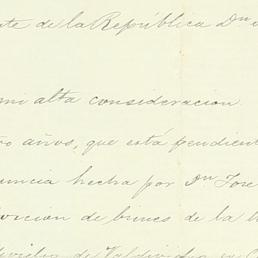 te de la República Dn
mi alta consideracion
años, que está pendient
uncia hecha por Dn Jose
de bienes de la
de Valdivi